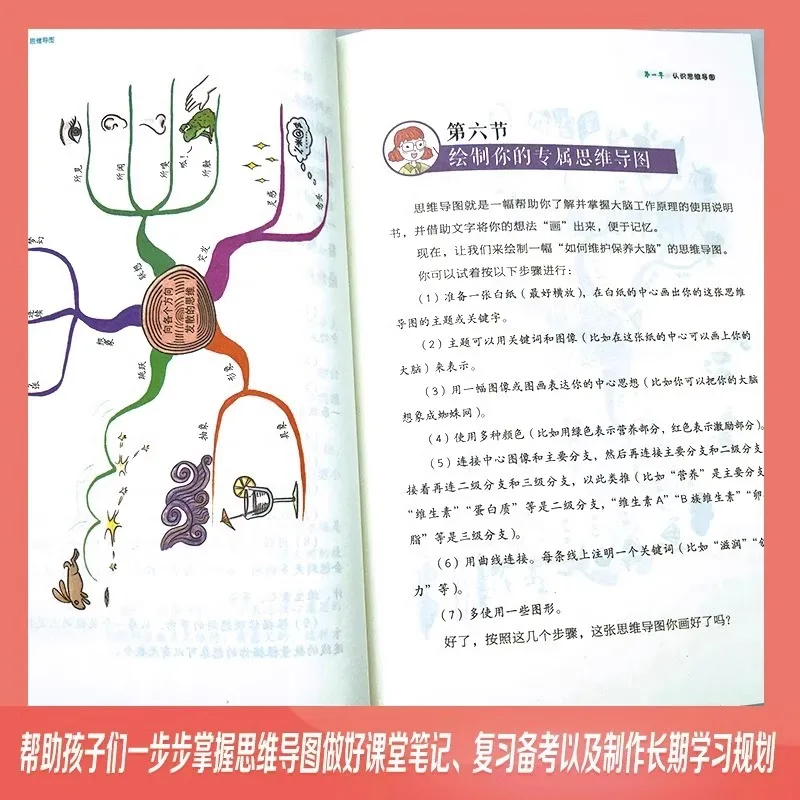 思维导图
所见
所闻
所嗅
呱!
所触
灵感
念头
感触
突发
向各个方向
发散的思维
梦幻
连续
想象
跳跃
形象
抽象
具象
第一章 认识思维导图
第六节
绘制你的专属思维导图
思维导图就是一幅帮助你了解并掌握大脑工作原理的使用说明
书，并借助文字将你的想法“画”出来，便于记忆。
现在，让我们来绘制一幅“如何维护保养大脑”的思维导图。
你可以试着按以下步骤进行：
（1）准备一张白纸（最好横放），在白纸的中心画出你的这张思维
导图的主题或关键字。
（2）主题可以用关键词和图像（比如在这张纸的中心可以画上你的
大脑）来表示。
（3）用一幅图像或图画表达你的中心思想（比如你可以把你的大脑
想象成蜘蛛网）。
（4）使用多种颜色（比如用绿色表示营养部分，红色表示激励部分）。
（5）连接中心图像和主要分支，然后再连接主要分支和二级分支
接着再连二级分支和三级分支，以此类推（比如“营养”是主要分支
“维生素”“蛋白质”等是二级分支，“维生素A”“B族维生素”“卵
脂”等是三级分支）。
（6）用曲线连接。每条线上注明一个关键词（比如“滋润”“
力”等）。
（7）多使用一些图形。
好了，按照这几个步骤，这张思维导图你画好了吗？
帮助孩子们一步步掌握思维导图做好课堂笔记、复习备考以及制作长期学习规划